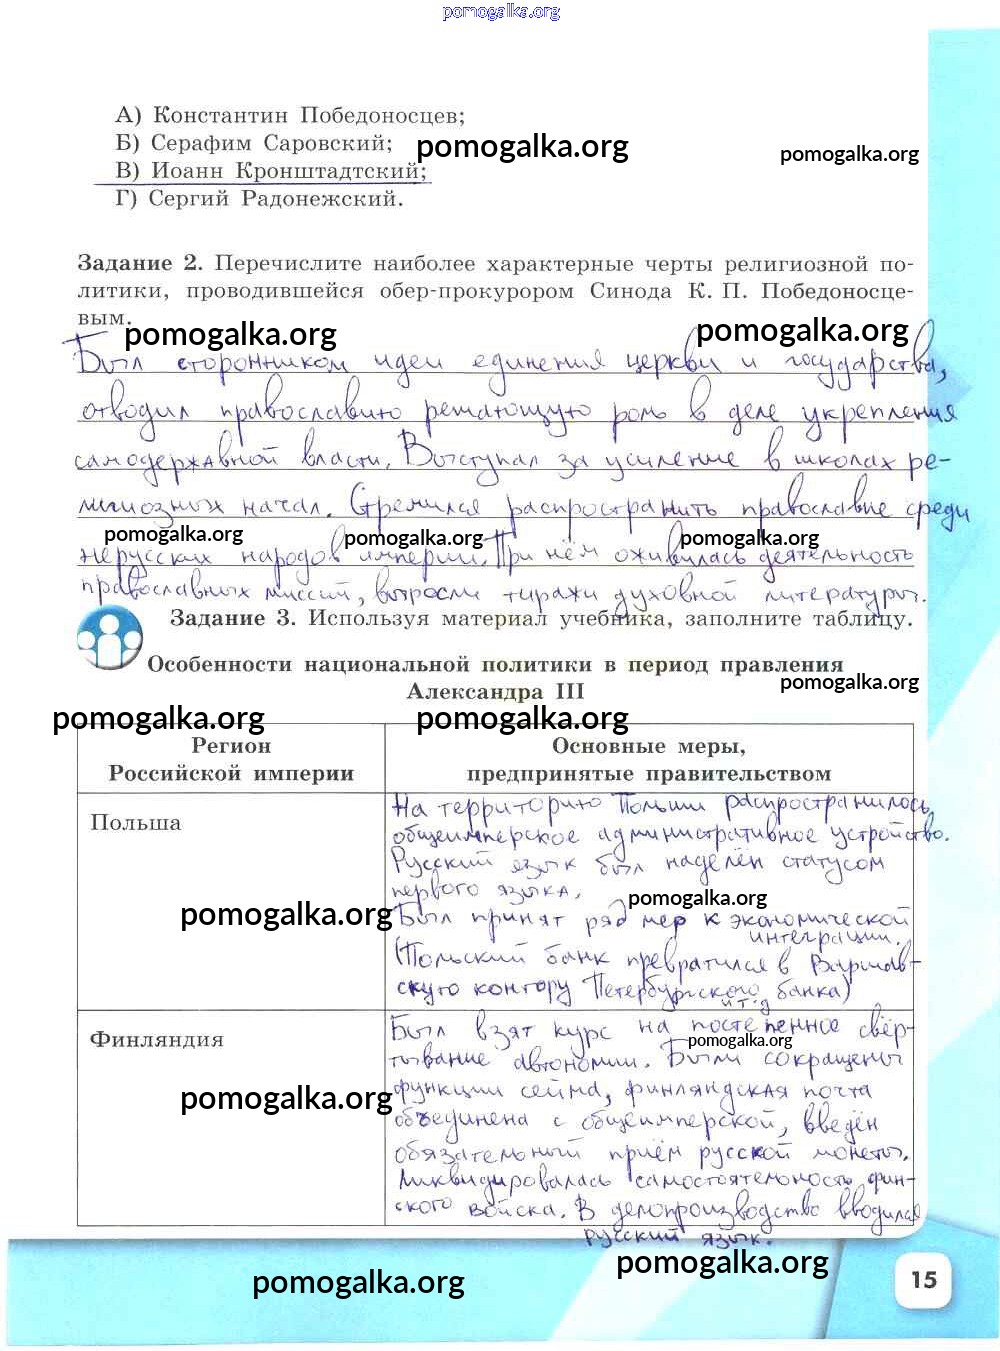 pomogalka.org
А) Константин Победоносцев;
Б) Серафим Саровский;
pomogalka.org
pomogalka.org
В) Иоанн Кронштадтский;
Г) Сергий Радонежский.
Задание 2. Перечислите наиболее характерные черты религиозной по-
литики, проводившейся обер-прокурором Синода К. П. Победоносце-
вым.
pomogalka.org
pomogalka.org
Был сторонником идеи единения церкви и государства,
отводил православию решающую роль в деле укрепления
самодержавной власти. Выступал за усиление в школах ре-
лигиозных начал. Стремился распространить православие среди
pomogalka.org
pomogalka.org
pomogalka.org
нерусских народов империи. При нём оживилась деятельность
православных миссий, выросли тиражи духовной литературы.
Задание 3. Используя материал учебника, заполните таблицу.
Особенности национальной политики в период правления
Александра III
pomogalka.org
pomogalka.org
pomogalka.org
Регион
Российской империи
Основные меры,
предпринятые правительством
Польша
На территорию Польши распространилось
общеимперское административное устройство.
Русский язык был наделён статусом
первого языка.
pomogalka.org
pomogalka.org
Был принят ряд мер к экономической
интеграции.
(Польский банк превратился в Варшав-
скую контору Петербургского банка)
и т.д
Финляндия
Был взят курс на постепенное свёр-
pomogalka.org
тывание автономии. Были сокращены
pomogalka.org
функции сейма, финляндская почта
объединена с общеимперской, введён
обязательный приём русской монеты.
Ликвидировалась самостоятельность фин-
ского войска. В делопроизводство вводился
русский язык.
pomogalka.org
pomogalka.org
15